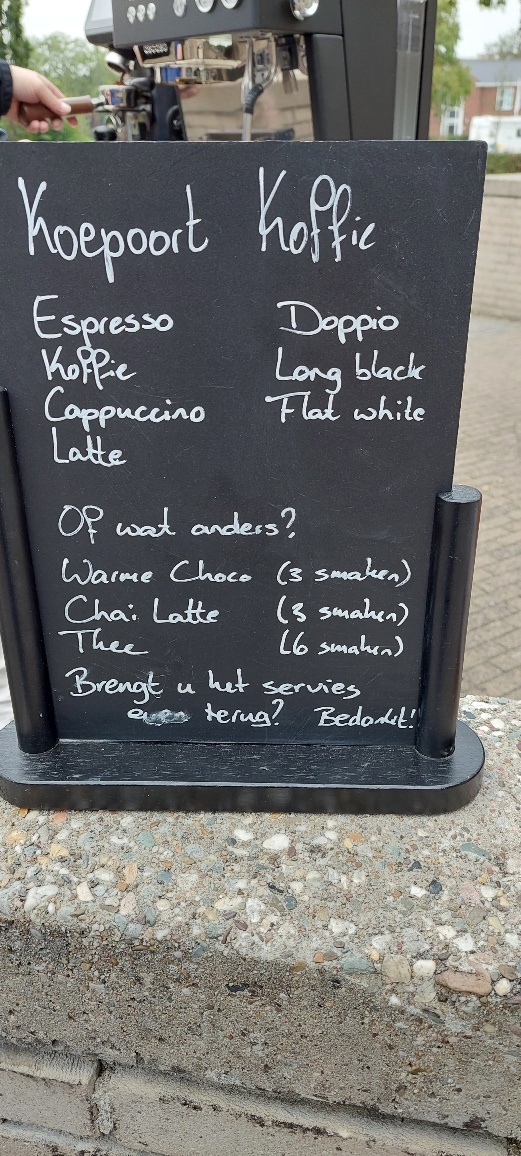 Koepoort Koffie
Espresso Doppio
Koffie Long black
Cappuccino Flat white
Latte
Of wat anders?
Warme Choco (3 smaken)
Chai Latte (3 smaken)
Thee (6 smaken)
Brengt u het servies
terug? Bedankt!